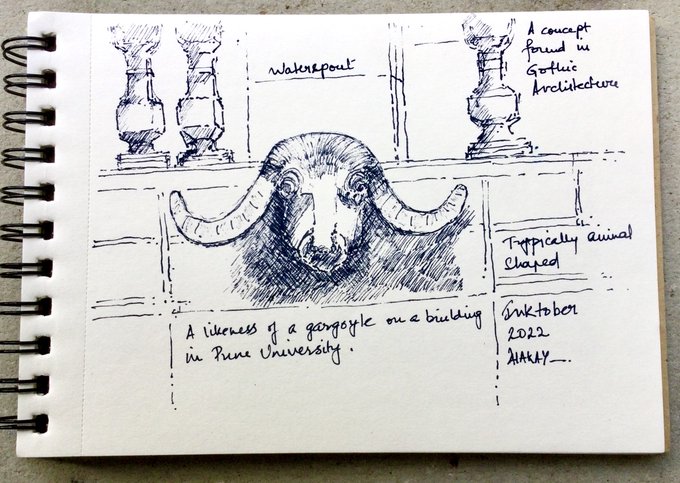 Waterspout
A concept
found in
Gothic
Architecture
Typically animal
shaped
A likeness of a gargoyle on a building
in Pune University.
Inktober
2022